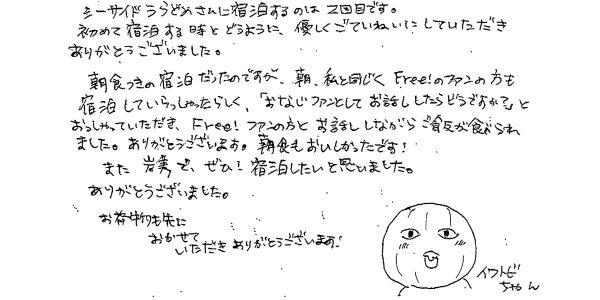 シーサイドうらどめさんに宿泊するのは2回目です。
初めて宿泊する時とどうように、優しくごていねいにしていただき
ありがとうございました。
朝食つきの宿泊だったのですが、朝、私と同じく Free!のファンの方も
宿泊していらっしゃったらしく、「おなじファンとしてお話ししたらどうですか?」と
おっしゃっていただき、Free!ファンの方とお話ししながらご飯が食べられ
ました。ありがとうございます。朝食もおいしかったです!
また 岩美で、ぜひ!宿泊したいと思いました。
ありがとうございました。
お荷物も先に
おかせて
いただき ありがとうございます!
イワトビ
ちゃん